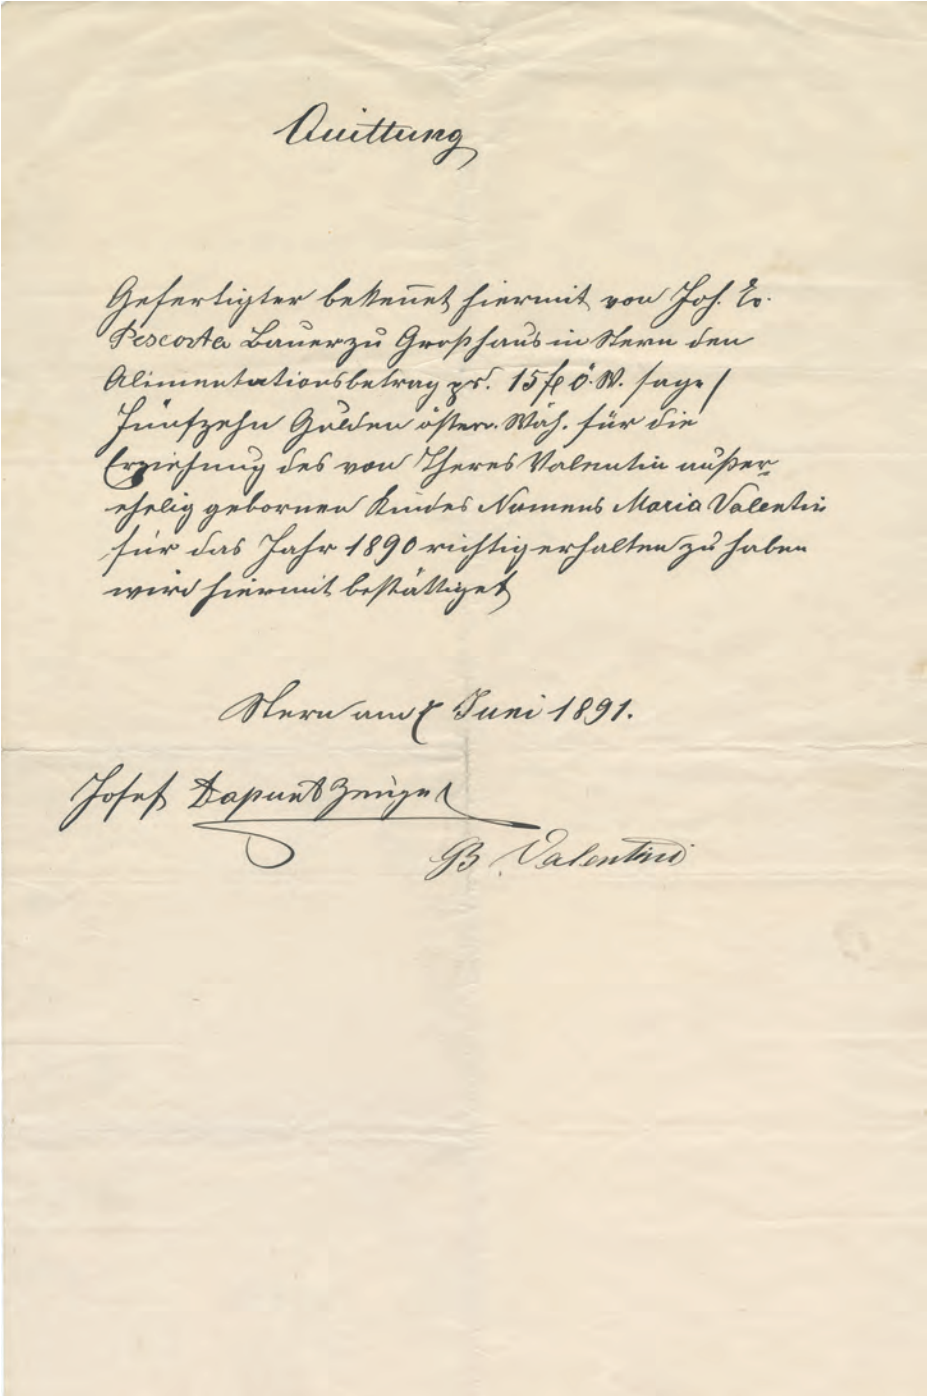 Quittung
Gefertigter bekennet hiermit von Joh. Ev.
Pescosta Bauer zu Großhaus in Stern den
Alimentationsbetrag pr. 15 fl ö. W. sage /
Fünfzehn Gulden österr. Wäh. für die
Erziehung des von Theres Valentin außer-
ehelig gebornen Kindes Namens Maria Valentin
für das Jahr 1890 richtig erhalten zu haben
wird hiermit bestättiget
Stern am Juni 1891.
Josef Dapunt Zeuge
B Valentini